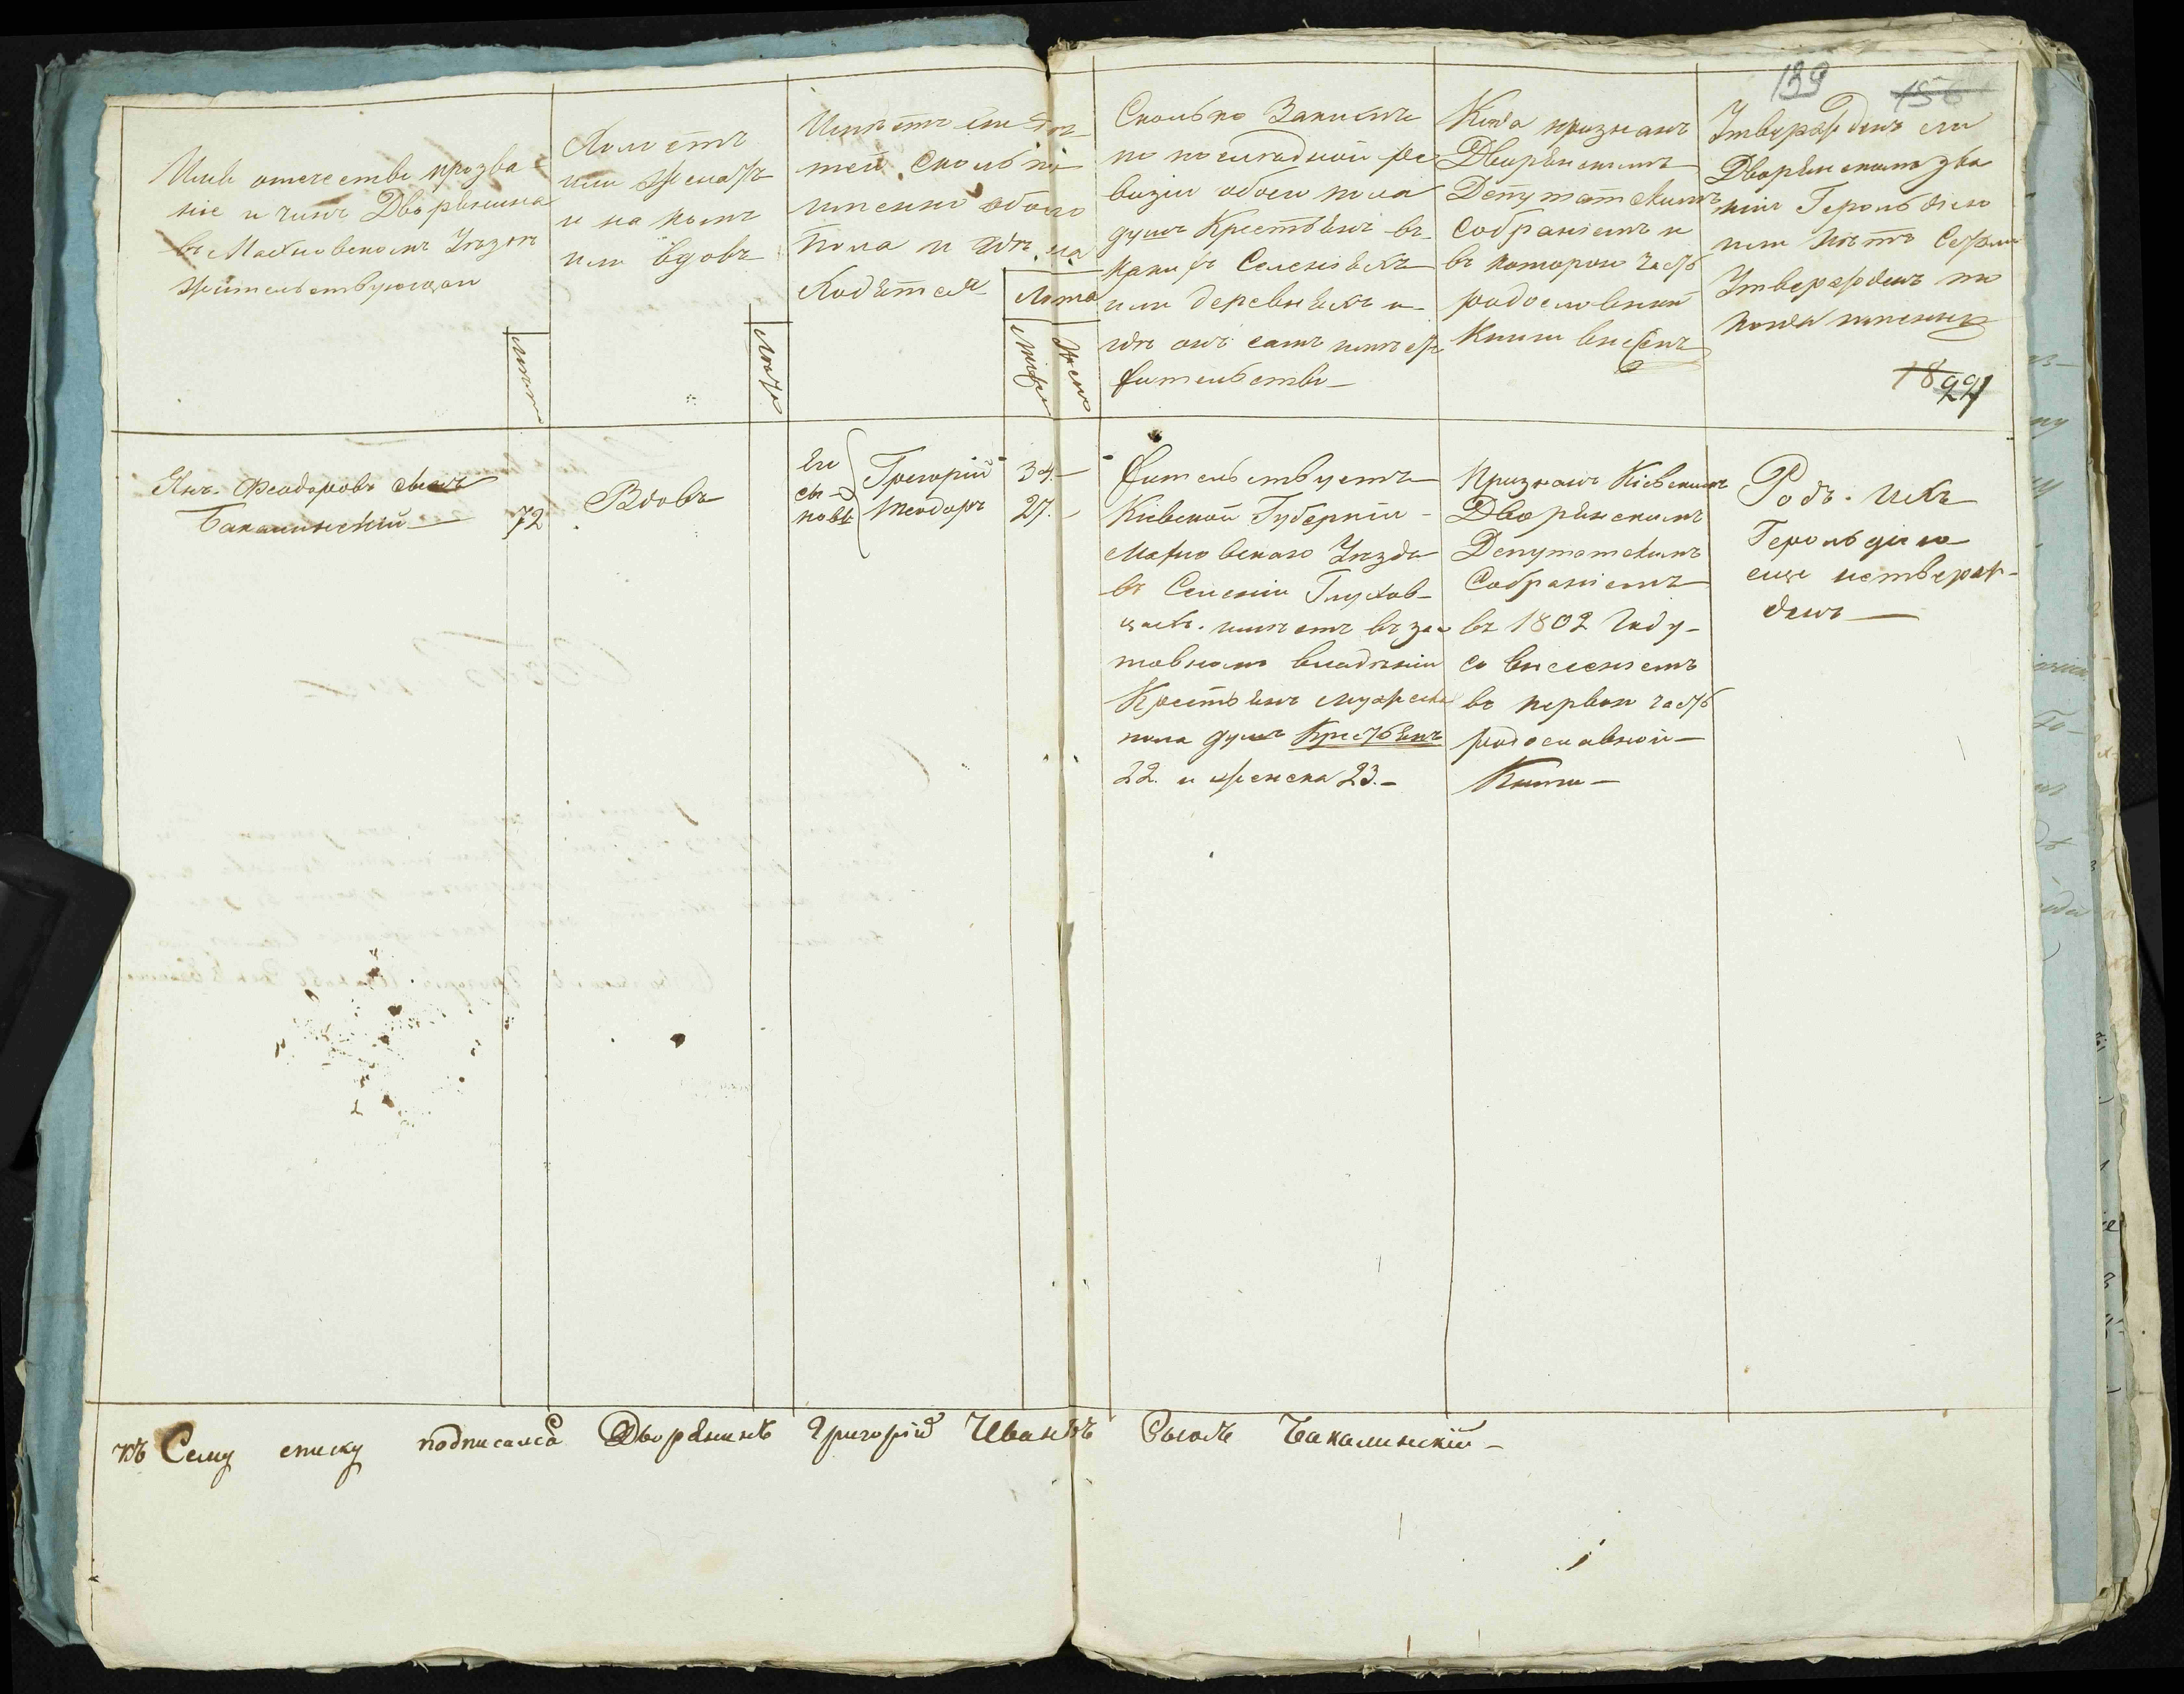 139 156
Имя отечество прозва
ніе и чинъ Дворянина
въ Махновскомъ Уѣздѣ
жительствующаго
Лѣта
Холостъ
или женатъ
и на комъ
или вдовъ
Лѣта
Имѣетъ ли дѣ-
тей сколько
имянно обоего
пола и гдѣ на
ходятся
Лѣта
Муж Жен
Сколько За нимъ
по последной ре
визіи обоего пола
душъ Крестьянъ въ
какихъ Селеніяхъ
или деревняхъ и
гдѣ онъ самъ имѣетъ
жительство
Когда признанъ
Дворянскимъ
Депутатскимъ
Собраніемъ и
въ которою часть
родословной
Книги внесенъ
Утвержденъ ли
Дворянскомъ зва
ніи Герольдіею
или нѣтъ Ежели
Утвержденъ то
когда имянно
18 994
Янъ Феодоровъ сынъ
Бакалинскій
72
Вдовъ
Его
сы-
новя
Григорій 34
Теодоръ 27.
Жительствуетъ
Кіевской Губерніи
Махновскаго Уѣзда
въ Селеніи Глухов-
цахъ. имѣетъ въ за
товномъ владѣніи
Крестьянъ мужеска
пола душъ Крестьянъ
22. и женска 23.
Признанъ Кіевскимъ
Дворянскимъ
Депутатскимъ
Собраніемъ
въ 1802 Году
со внесеніемъ
въ первою часть
родословной
Книги
Родъ ихъ
Герольдіею
еще неутверж-
денъ
къ Сему списку подписался Дворянинъ Григорій Ивановъ Сынъ Бакалинскій